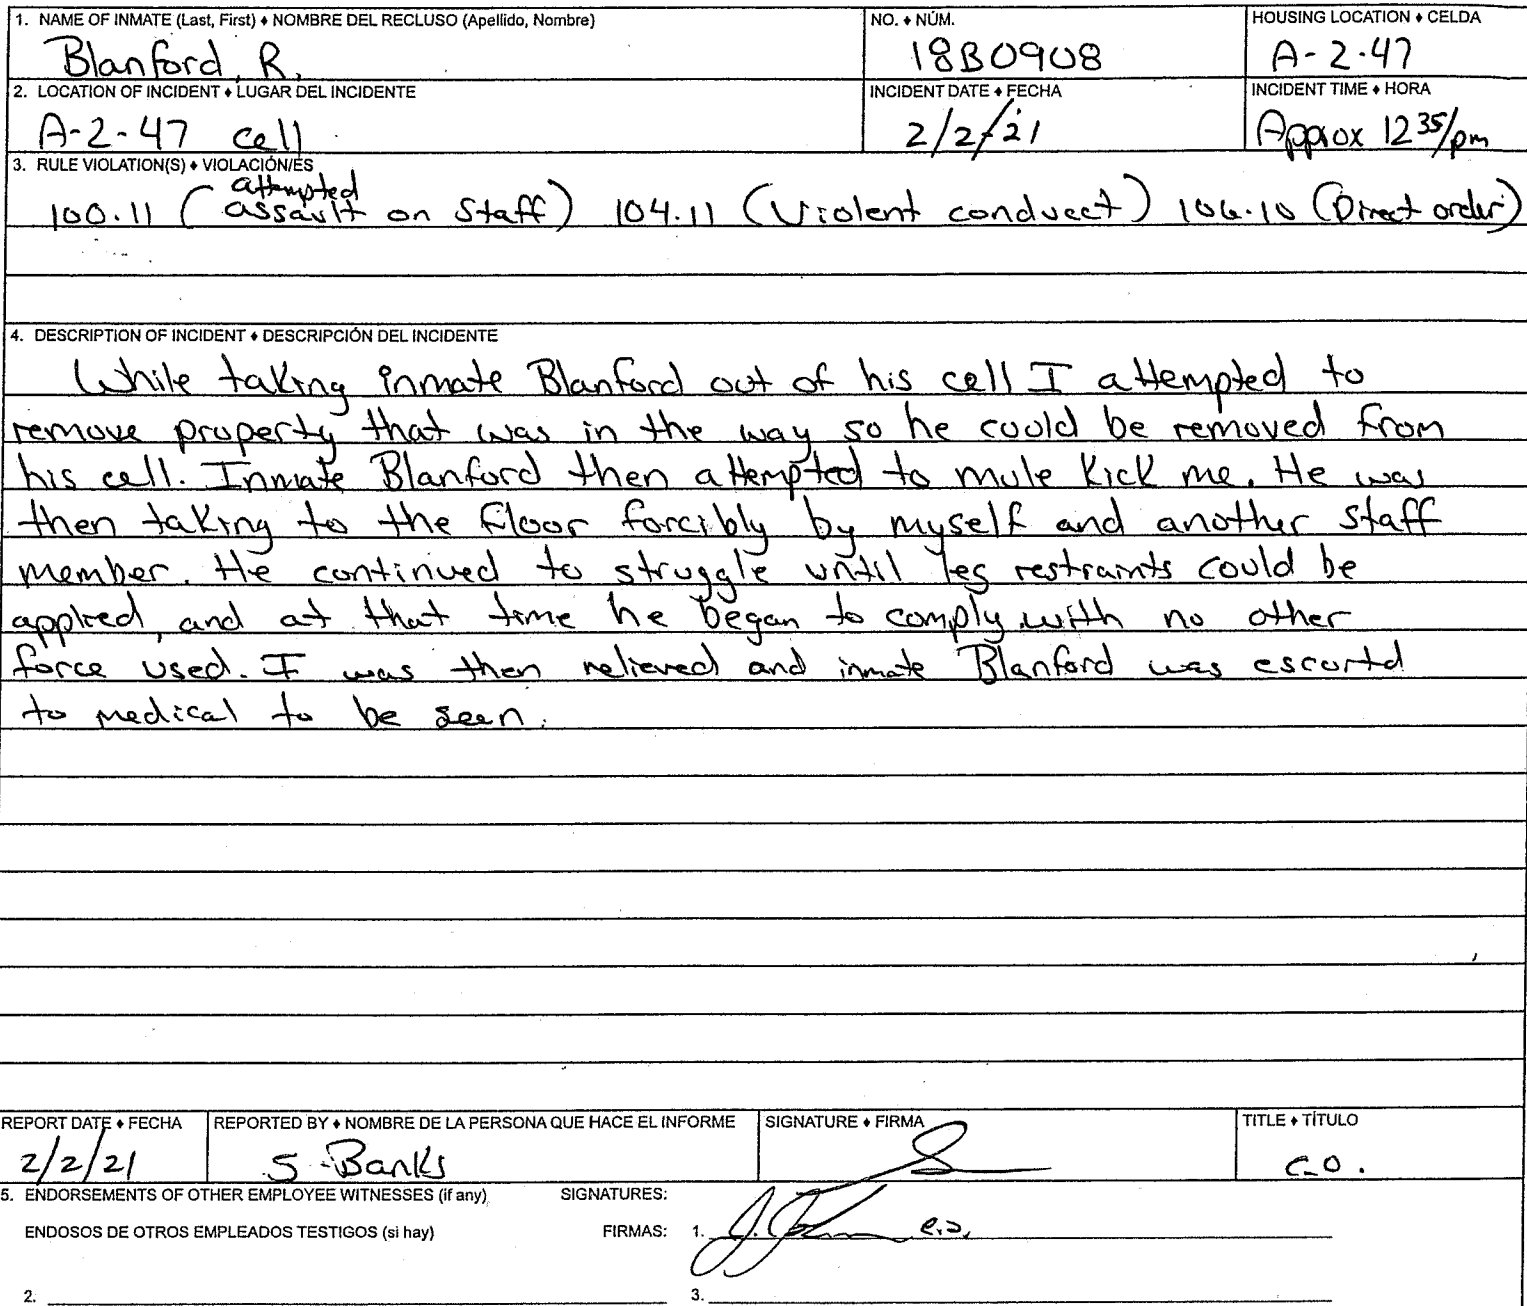 1. NAME OF INMATE (Last, First) ♦ NOMBRE DEL RECLUSO (Apellido, Nombre) NO. ♦ NÚM. HOUSING LOCATION ♦ CELDA
Blanford, R. 18B0908 A-2-47
2. LOCATION OF INCIDENT ♦ LUGAR DEL INCIDENTE INCIDENT DATE ♦ FECHA INCIDENT TIME ♦ HORA
A-2-47 cell 2/2/21 Approx 12 35/pm
3. RULE VIOLATION(S) ♦ VIOLACIÓN/ES
attempted
100.11 (assault on Staff) 104.11 (Violent conduect) 106.10 (Direct order)
4. DESCRIPTION OF INCIDENT ♦ DESCRIPCIÓN DEL INCIDENTE
While taking inmate Blanford out of his cell I attempted to
remove property that was in the way so he could be removed from
his cell. Inmate Blanford then attempted to mule kick me. He was
then taking to the floor forcibly by myself and another staff
member. He continued to struggle until leg restraints could be
applied, and at that time he began to comply with no other
force used. I was then relieved and inmate Blanford was escortd
to medical to be seen.
REPORT DATE ♦ FECHA REPORTED BY ♦ NOMBRE DE LA PERSONA QUE HACE EL INFORME SIGNATURE ♦ FIRMA TITLE ♦ TÍTULO
2/2/21 S. Banks C.O.
5. ENDORSEMENTS OF OTHER EMPLOYEE WITNESSES (if any) SIGNATURES:
ENDOSOS DE OTROS EMPLEADOS TESTIGOS (si hay) FIRMAS: 1. c.o.
2. 3.